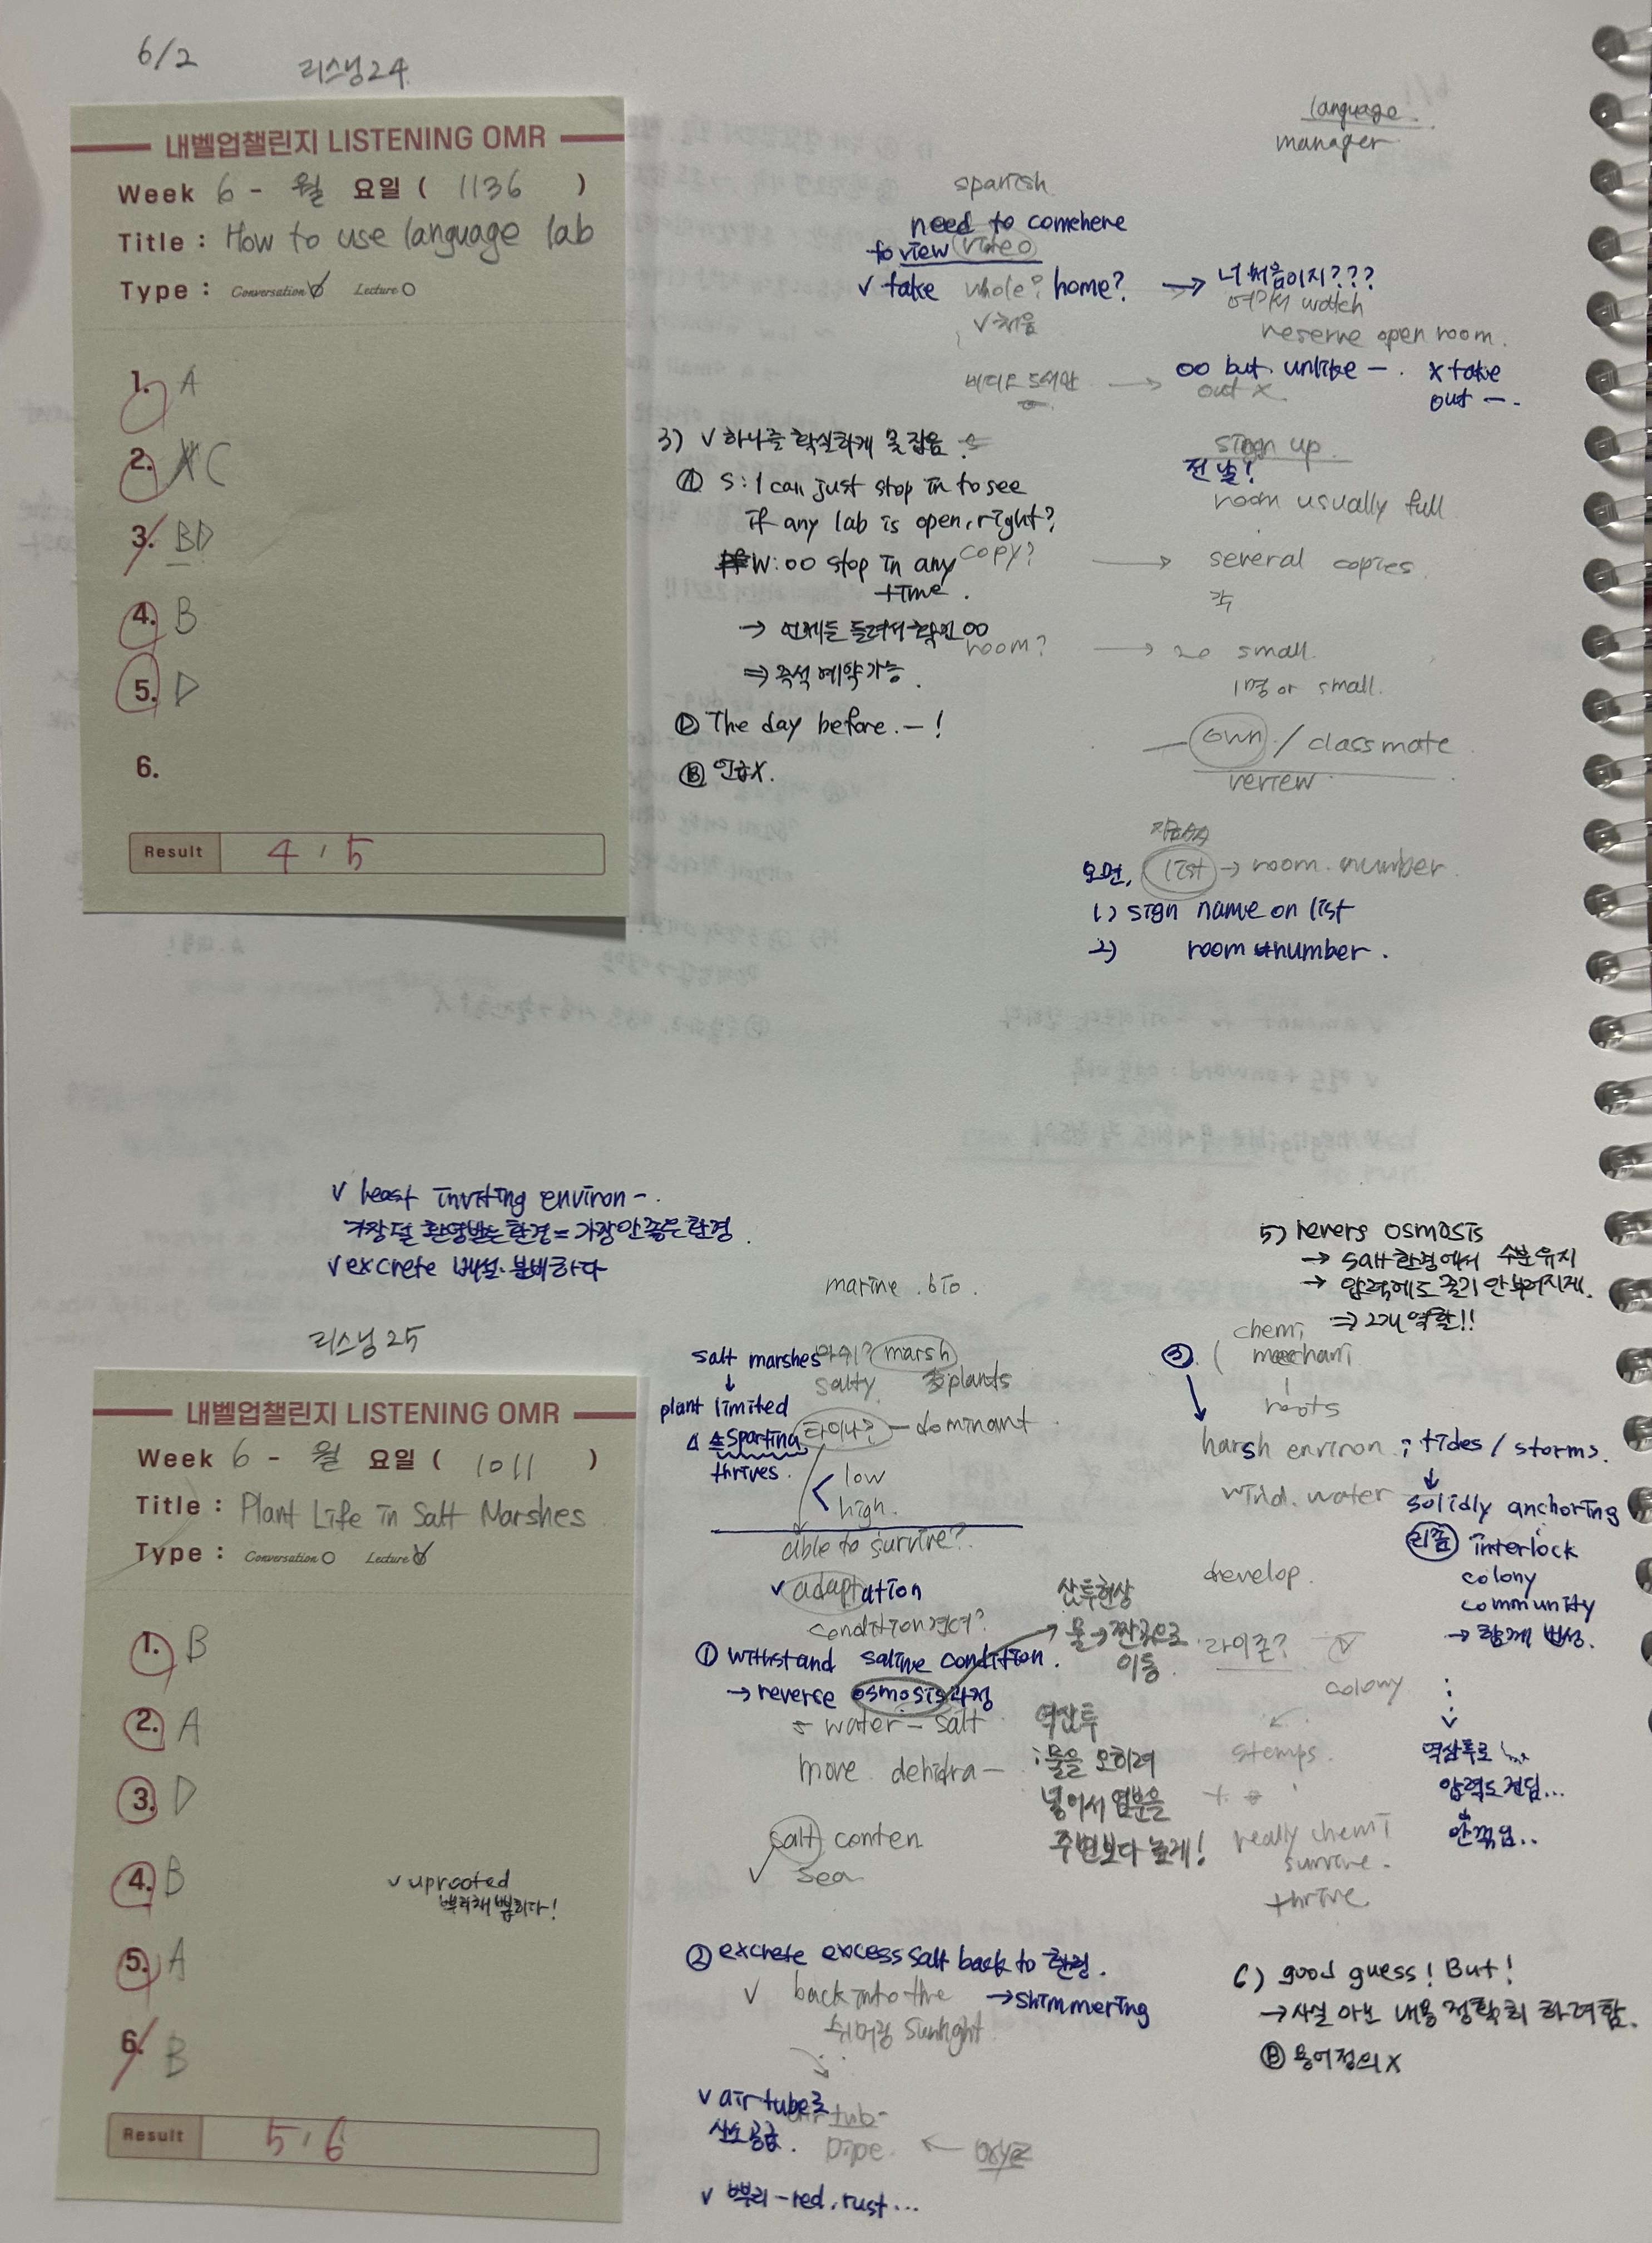 6/2
리스닝 24
내벨업챌린지 LISTENING OMR
Week 6 - 월 요일 ( 1136 )
Title : How to use language lab
Type : Conversation Lecture
1. A
2. C
3. BD
4. B
5. D
6.
Result 4 / 5
language
manager
spanish
need to comehere
to view video
✓ take whole? home? → 너 처음이지???
여기서 watch
✓ 처음
reserve open room.
비디오 도서관 → oo but unlike —. x take
out x.
out —.
3) ✓ 하나를 확실하게 못 잡음.
sign up
전날!
room usually full
Ⓐ S: I can just stop in to see
if any lab is open, right?
W: oo stop in any
time.
copy? → several copies.
각
→ 언제든 들려서 확인 oo
room? → 20 small.
⇒ 즉석 예약 가능.
1명 or small.
Ⓓ The day before. — !
— own / classmate
review
Ⓑ 언급X.
오면, list → room number
1) sign name on list
2) room number.
✓ least inviting environ-.
가장 덜 환영받는 환경 = 가장 안 좋은 환경
✓ excrete 배설·분비하다
리스닝 25
내벨업챌린지 LISTENING OMR
Week 6 - 월 요일 ( 1011 )
Title : Plant Life in Salt Marshes
Type : Conversation Lecture
1. B
2. A
3. D
4. B
5. A
6. B
Result 5 / 6
✓ uprooted
뿌리채 뽑히다!
marine . bio .
salt marshes 마쉬? marsh
↓ salty plants
plant limited
sparting 타이나? — dominant
thrives.
low
high.
able to survive?
✓ adaptation
condition 견뎌?
① withstand saline condition.
→ reverse osmosis 과정
water — salt
move dehidra —
salt conten
✓ sea
삼투현상
물 → 짠 곳으로
이동
역삼투
; 물을 오히려
넣어서 염분을
주변보다 높게!
② excrete excess salt back to 환경.
✓ back into the → shimmering
쉬머링 sunlight
✓ air tube로
산소 공급.
air tub-
pipe. ← oxyz
✓ 뿌리 - red, rust ...
5) revers osmosis
→ salt 환경에서 수분 유지
→ 압력에도 줄기 안 부러지게.
⇒ 2개 역할!!
③ ( chemi
mechani
roots
harsh environ ; tides / storms.
wind. water
↓
solidly anchoring
리좀 interlock
colony
community
→ 함께 번성.
develop.
라이존?
colony
stemps.
역삼투로
압력도 견딤...
안 꺾임..
really chemi
survive.
thrive
6) good guess! But!
→ 사실 아는 내용 정확히 하려함.
Ⓑ 용어정의 X